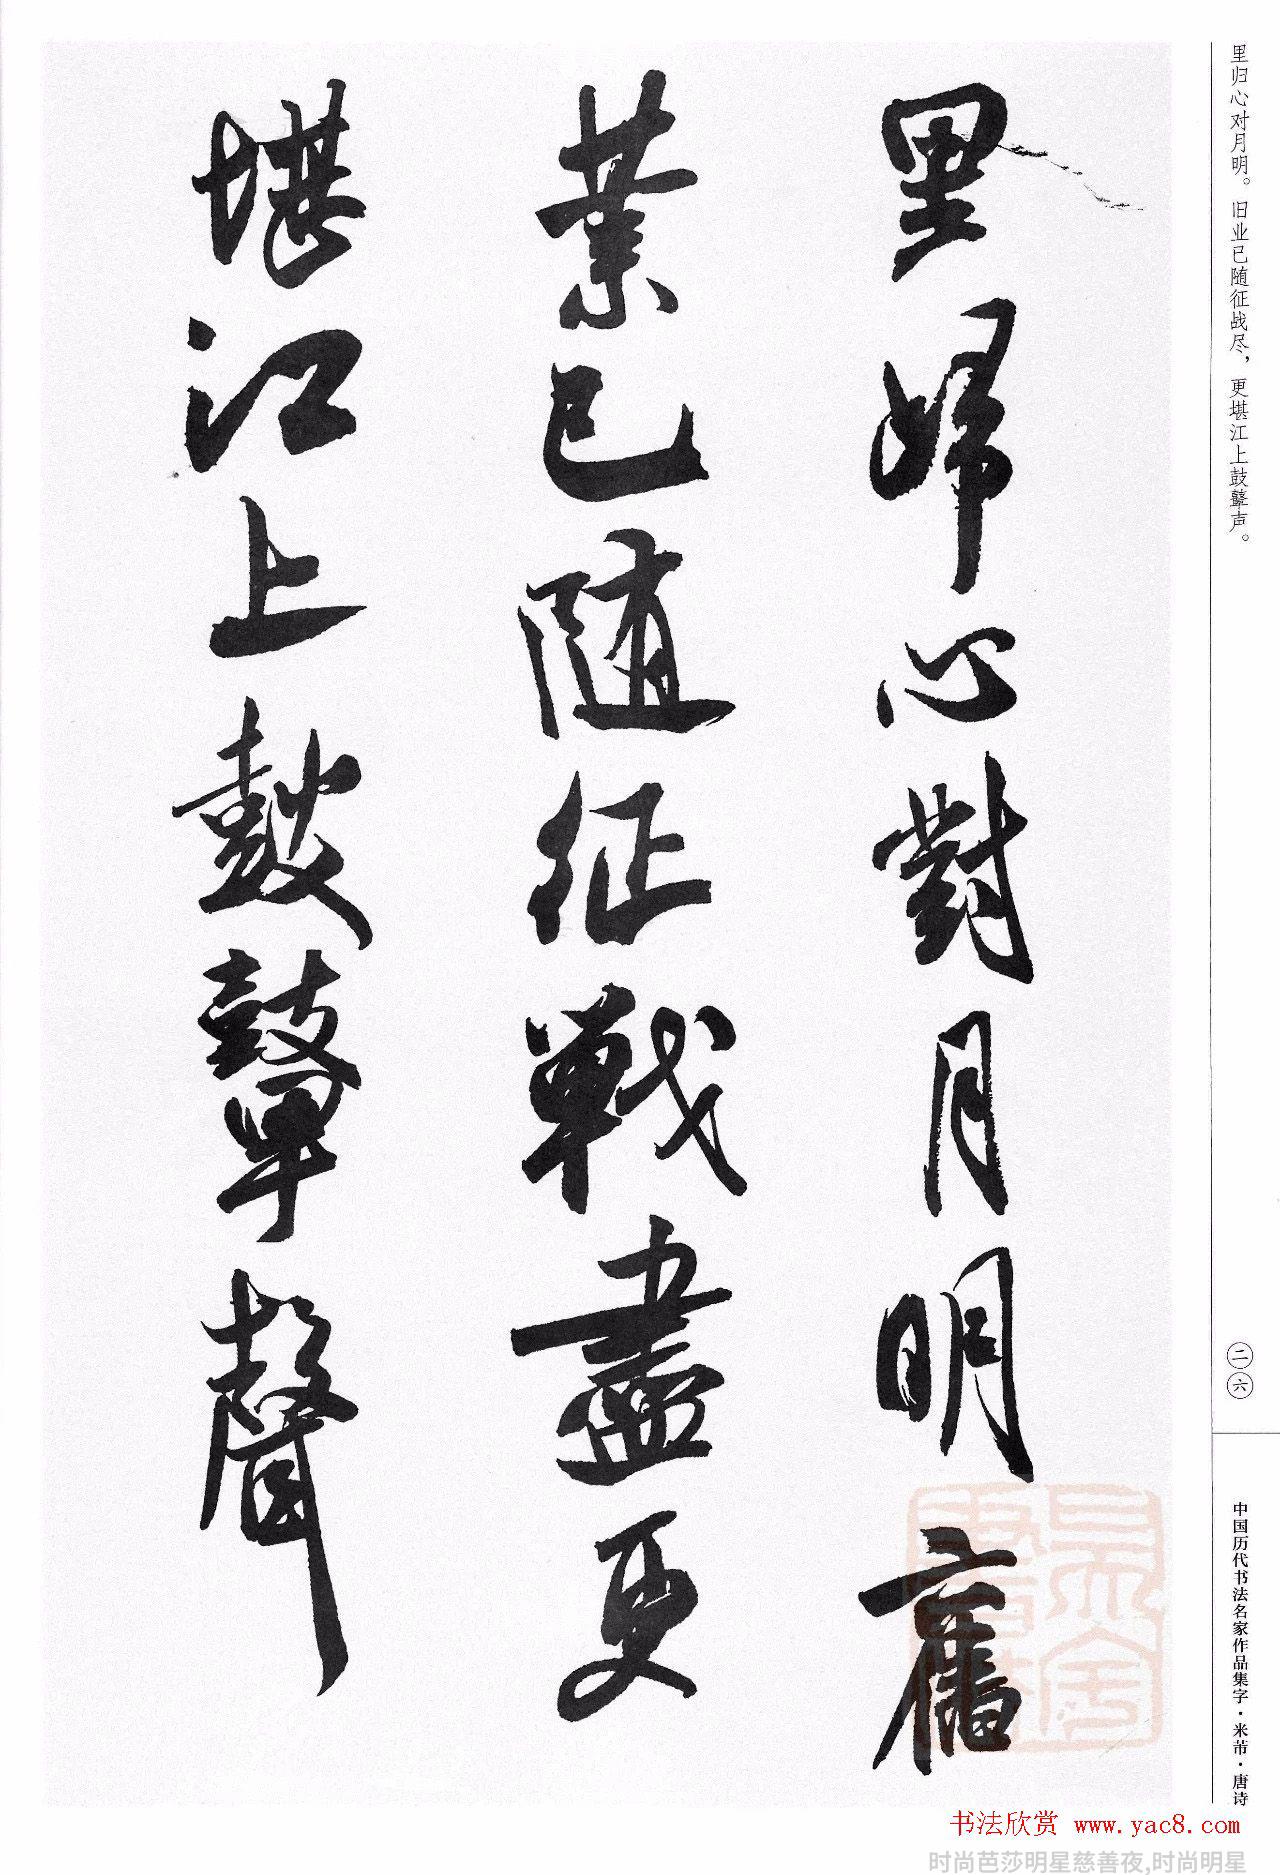 里归心对月明。旧业已随征战尽，更堪江上鼓鼙声。
里歸心對月明舊
業已随征戰盡更
堪江上鼓鼙聲
二六
中国历代书法名家作品集字·米芾·唐诗
书法欣赏 www.yac8.com
时尚芭莎明星慈善夜,时尚明星